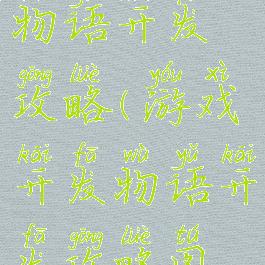 物语开发
gōng lüè yóu xì
攻略(游戏
kāi fā wù yǔ kāi
开发物语开
fā gōng lüè tú
发攻略图